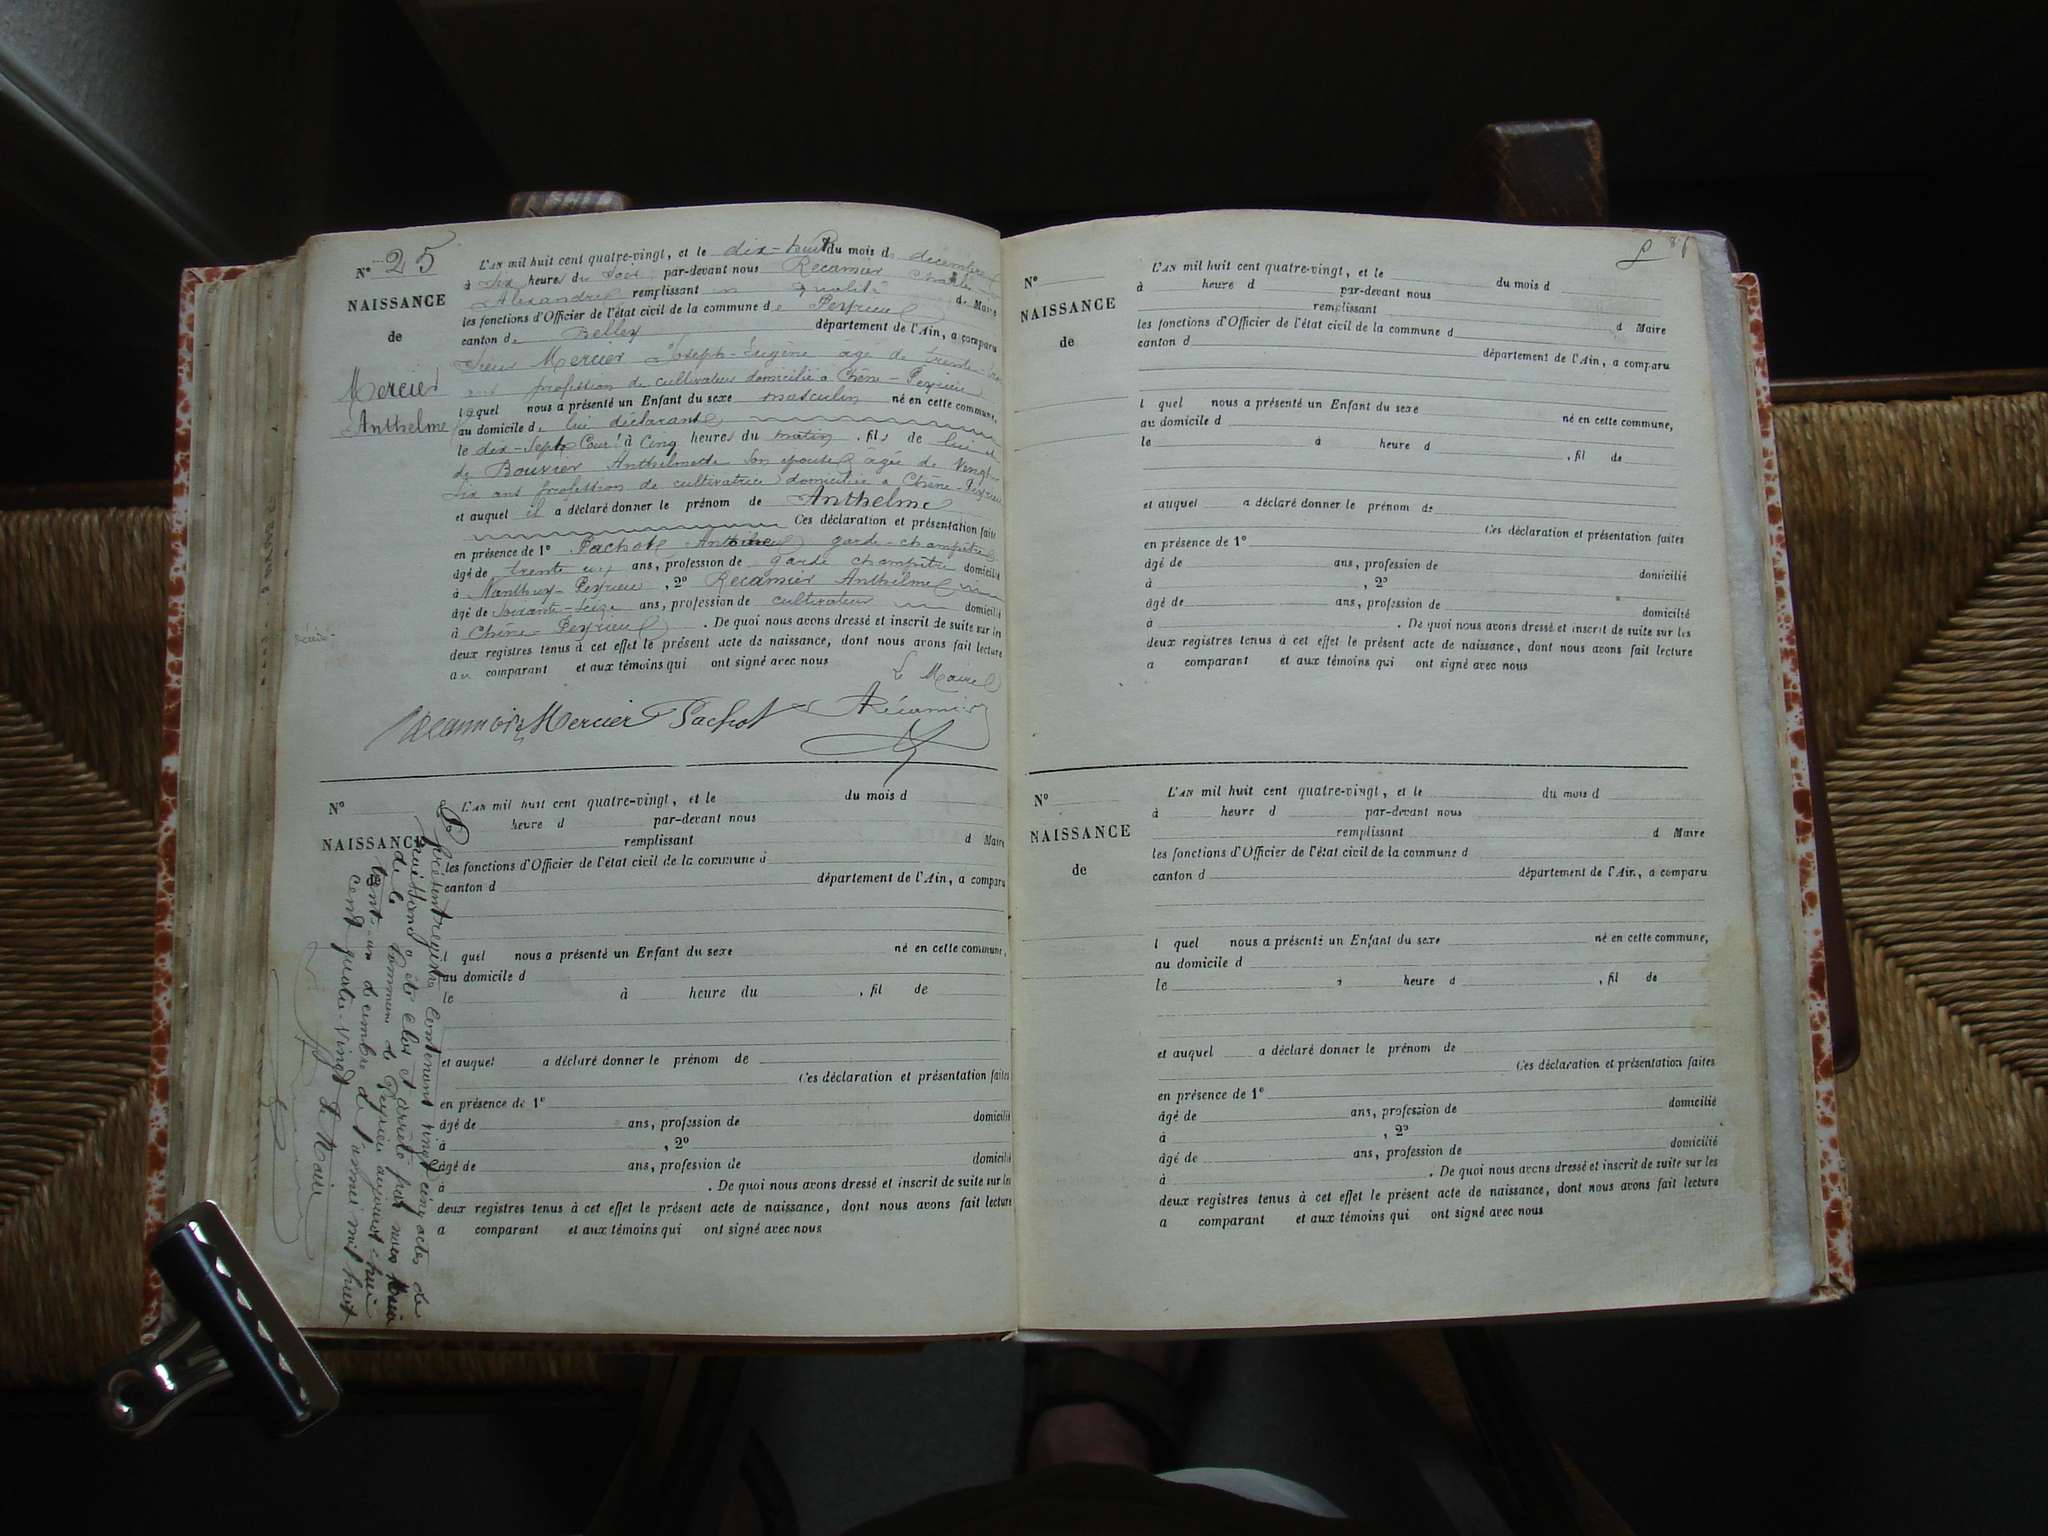 N° 25
NAISSANCE
de
Mercier
Anthelme
L'AN mil huit cent quatre-vingt, et le dix-huit du mois de décembre
à six heures du soir par-devant nous Récamier Charles
Alexandre remplissant en qualité de Maire
les fonctions d'Officier de l'état civil de la commune de Peyrieu
canton de Belley département de l'Ain, a comparu
Sieur Mercier Joseph-Eugène âgé de trente-
ans profession de cultivateur domicilié à Chêne-Peyrieu
lequel nous a présenté un Enfant du sexe masculin né en cette commune,
au domicile de lui déclarant
le dix-sept Cour.t à Cinq heures du matin, fils de lui et
de Bouvier Anthelmette son épouse âgée de vingt
six ans profession de cultivatrice domiciliée à Chêne-Peyrieu
et auquel il a déclaré donner le prénom de Anthelme
Ces déclaration et présentation faites
en présence de 1° Pachot garde-champêtre
âgé de trente ans, profession de garde champêtre domicilié
à Nanthuy-Peyrieu, 2° Récamier Anthelme
âgé de soixante-seize ans, profession de cultivateur domicilié
à Chêne-Peyrieu. De quoi nous avons dressé et inscrit de suite sur les
deux registres tenus à cet effet le présent acte de naissance, dont nous avons fait lecture
au comparant et aux témoins qui ont signé avec nous
Le Maire
Récamier Mercier Pachot Récamier
N°
NAISSANCE
L'AN mil huit cent quatre-vingt, et le du mois d
heure d par-devant nous
remplissant d Maire
les fonctions d'Officier de l'état civil de la commune d
canton d département de l'Ain, a comparu
l quel nous a présenté un Enfant du sexe né en cette commune,
au domicile d
le à heure du, fil de
et auquel a déclaré donner le prénom de
Ces déclaration et présentation faites
en présence de 1°
âgé de ans, profession de domicilié
à, 2°
âgé de ans, profession de domicilié
à. De quoi nous avons dressé et inscrit de suite sur les
deux registres tenus à cet effet le présent acte de naissance, dont nous avons fait lecture
a comparant et aux témoins qui ont signé avec nous
Le Présent registre contenant vingt cinq actes de
naissance a été clos et arrêté par nous Maire
de la commune de Peyrieu aujourd'hui
trent-un décembre de l'année mil huit
cent quatre-vingt
Le Maire
N°
NAISSANCE
de
L'AN mil huit cent quatre-vingt, et le du mois d
à heure d par-devant nous
remplissant d Maire
les fonctions d'Officier de l'état civil de la commune d
canton d département de l'Ain, a comparu
l quel nous a présenté un Enfant du sexe né en cette commune,
au domicile d
le à heure d, fil de
et auquel a déclaré donner le prénom de
Ces déclaration et présentation faites
en présence de 1°
âgé de ans, profession de domicilié
à, 2°
âgé de ans, profession de domicilié
à. De quoi nous avons dressé et inscrit de suite sur les
deux registres tenus à cet effet le présent acte de naissance, dont nous avons fait lecture
a comparant et aux témoins qui ont signé avec nous
N°
NAISSANCE
de
L'AN mil huit cent quatre-vingt, et le du mois d
à heure d par-devant nous
remplissant d Maire
les fonctions d'Officier de l'état civil de la commune d
canton d département de l'Ain, a comparu
l quel nous a présenté un Enfant du sexe né en cette commune,
au domicile d
le à heure d, fil de
et auquel a déclaré donner le prénom de
Ces déclaration et présentation faites
en présence de 1°
âgé de ans, profession de domicilié
à, 2°
âgé de ans, profession de domicilié
à. De quoi nous avons dressé et inscrit de suite sur les
deux registres tenus à cet effet le présent acte de naissance, dont nous avons fait lecture
a comparant et aux témoins qui ont signé avec nous